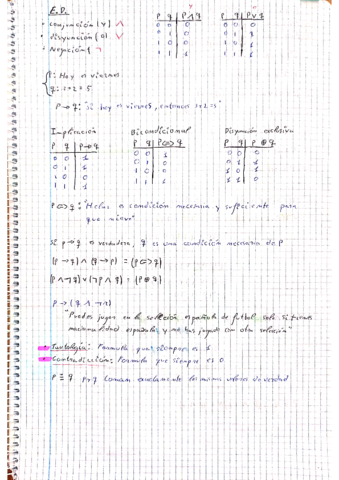 E.P.
• conjunción (y) ∧
• disyunción (o) ∨
• Negación ( ¬
p q p∧q
0 0 0
0 1 0
1 0 0
1 1 1
p q p∨q
0 0 0
0 1 1
1 0 1
1 1 1
p: Hoy es viernes
q: 1+2=5
p→q: "Si hoy es viernes, entonces 1+2=5"
Implicación Bicondicional Disyunción exclusiva
p q p→q
0 0 1
0 1 1
1 0
1 1 1
p q p⇔q
0 0 1
0 1 0
1 0 0
1 1 1
p q p⊕q
0 0 0
0 1 1
1 0 1
1 1 0
p⇔q: "Helar es condición necesaria y suficiente para
que nieve"
Si p→q es verdadera, q es una condición necesaria de p
(p→q)∧(q→p) = (p⇔q)
(p∧¬q)∨(¬p∧q) = (p⊕q)
p→(q∧¬r)
"Puedes jugar en la selección española de futbol solo si tienes
nacionalidad española y no has jugado con otra selección"
• Tautología: Formula que siempre es 1
• Contradicción: Formula que siempre es 0
p≡q p y q toman exactamente los mismos valores de verdad